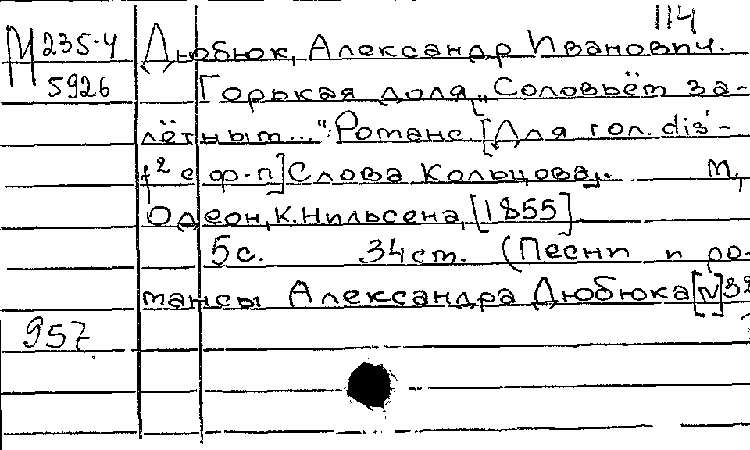 114
М 235-4 Дюбюк, Александр Иванович.
5926 Горькая доля. „Соловьём за-
лётным..." Романс. [Для гол. dis'-
f² с ф.-п] Слова Кольцова. М,
Одеон, К. Нильсена, [1855]
5с. 34ст. (Песни и ро-
мансы Александра Дюбюка [N] 32
957